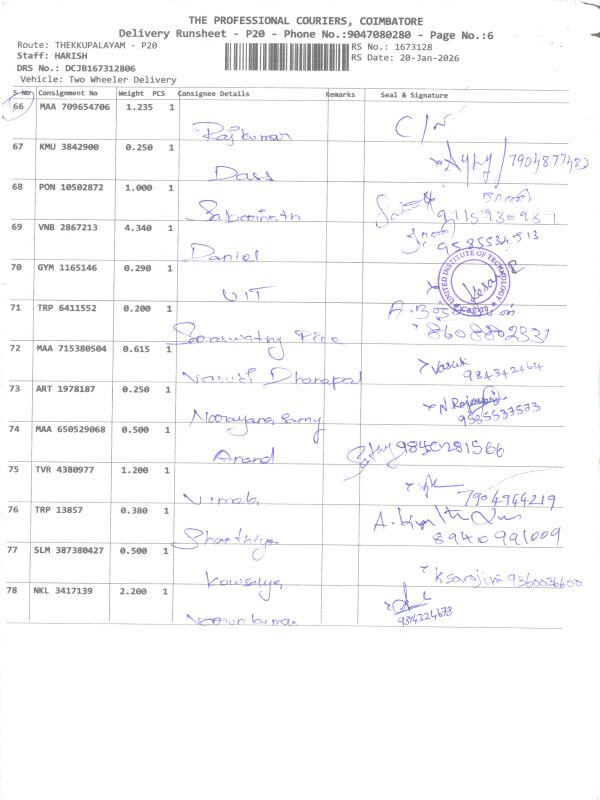 THE PROFESSIONAL COURIERS, COIMBATORE
Delivery Runsheet - P20 - Phone No.:9047080280 - Page No.:6
Route: THEKKUPALAYAM - P20
RS No.: 1673128
Staff: HARISH
RS Date: 20-Jan-2026
DRS No.: DCJB167312806
Vehicle: Two Wheeler Delivery
S No Consignment No Weight PCS Consignee Details Remarks Seal & Signature
66 MAA 709654706 1.235 1
Rajkumar C/N
67 KMU 3842900 0.250 1
Dass 7904877482
68 PON 10502872 1.000 1
9115930937
69 VNB 2867213 4.340 1
Daniel 9585534513
70 GYM 1165146 0.290 1
UIT UNITED INSTITUTE OF TECHNOLOGY
71 TRP 6411552 0.200 1
8608802331
72 MAA 715380504 0.615 1
Vasuki Dhanapal Vasuki 984342464
73 ART 1978187 0.250 1
Naarayana Samy 9585537573
74 MAA 650529068 0.500 1
Anand 9840281566
75 TVR 4380977 1.200 1
Vimala 7904964219
76 TRP 13857 0.380 1
Shanthiya 8940991009
77 SLM 387380427 0.500 1
Kowsalya Ksarojini 9360036600
78 NKL 3417139 2.200 1
9894324678